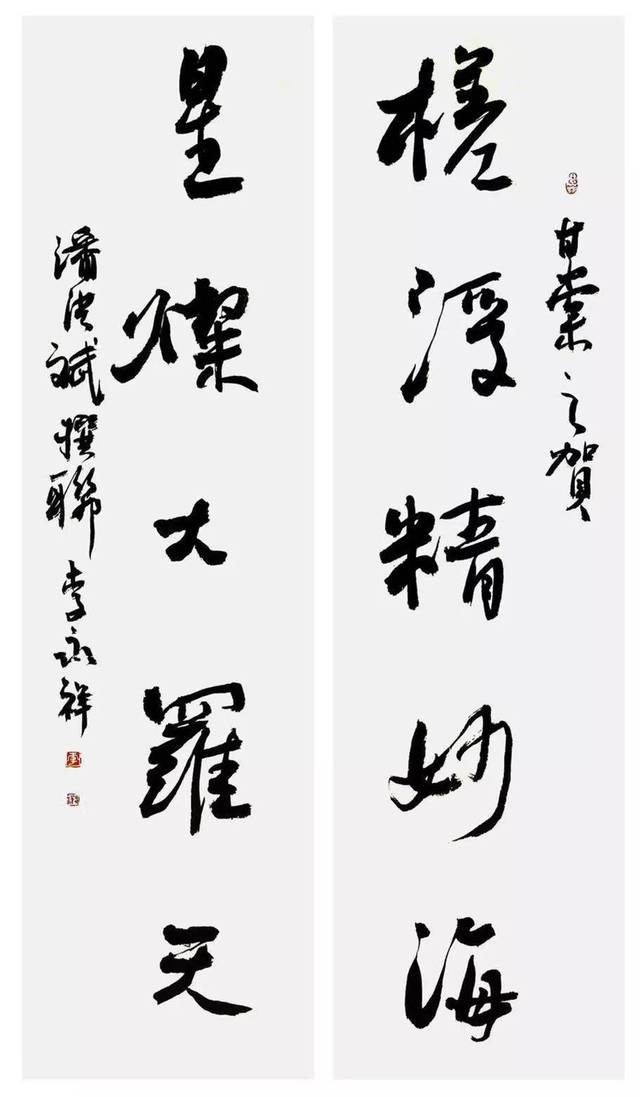 槎浮精妙海
甘棠之贺
星灿大羅天
潘洪斌撰聯 李永祥